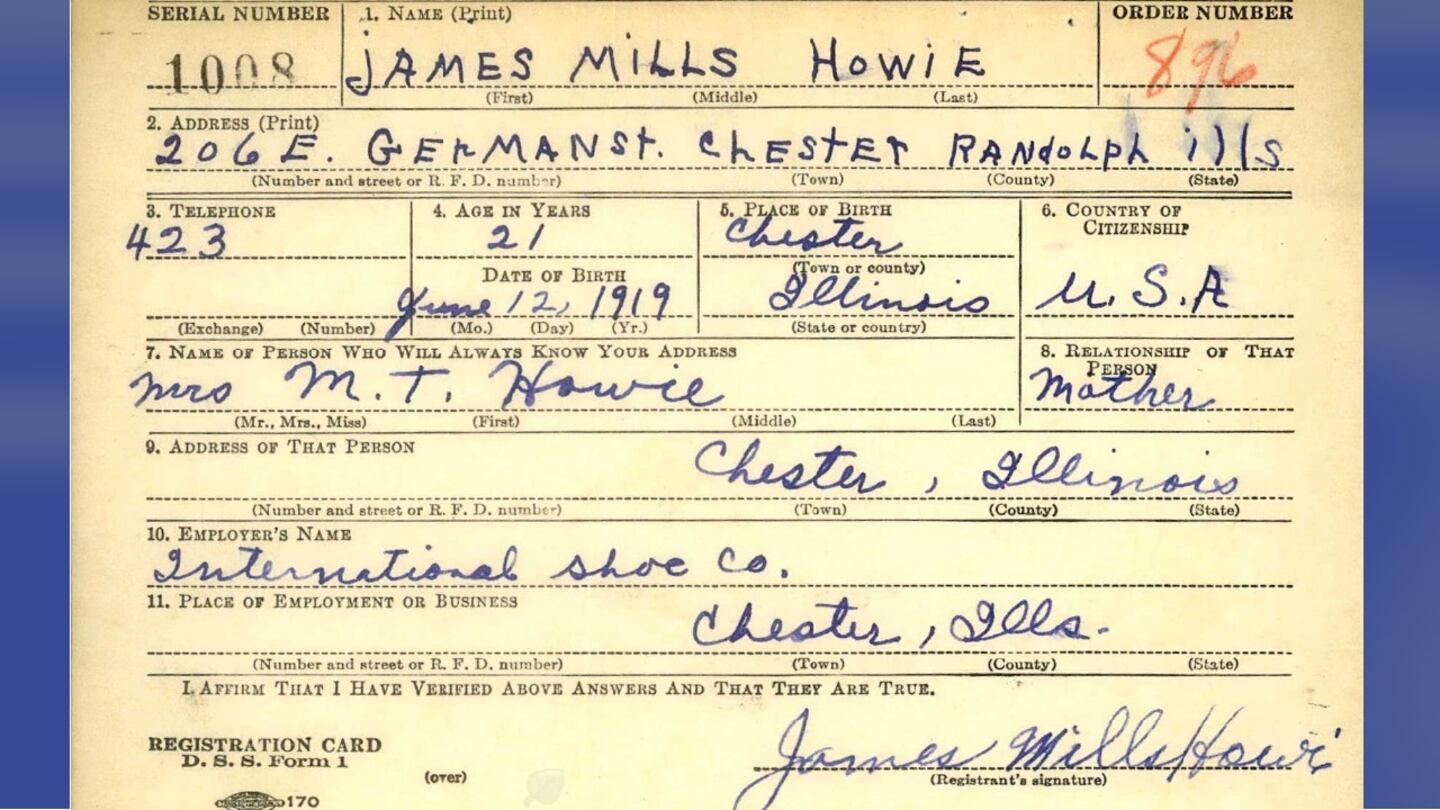 SERIAL NUMBER 1. NAME (Print) ORDER NUMBER
1008 JAMES MILLS HOWIE 896
(First) (Middle) (Last)
2. ADDRESS (Print)
206 E. GERMAN St. CHESTER RANdOLPh ills
(Number and street or R. F. D. number) (Town) (County) (State)
3. TELEPHONE 4. AGE IN YEARS 5. PLACE OF BIRTH 6. COUNTRY OF
CITIZENSHIP
423 21 Chester
DATE OF BIRTH (Town or county)
June 12, 1919 Illinois U.S.A
(Exchange) (Number) (Mo.) (Day) (Yr.) (State or country)
7. NAME OF PERSON WHO WILL ALWAYS KNOW YOUR ADDRESS 8. RELATIONSHIP OF THAT
PERSON
Mrs M. T. Howie Mother
(Mr., Mrs., Miss) (First) (Middle) (Last)
9. ADDRESS OF THAT PERSON
Chester, Illinois
(Number and street or R. F. D. number) (Town) (County) (State)
10. EMPLOYER'S NAME
International Shoe Co.
11. PLACE OF EMPLOYMENT OR BUSINESS
Chester, Ills.
(Number and street or R. F. D. number) (Town) (County) (State)
I AFFIRM THAT I HAVE VERIFIED ABOVE ANSWERS AND THAT THEY ARE TRUE.
REGISTRATION CARD James Mills Howie
D. S. S. Form 1
(over) (Registrant's signature)
170